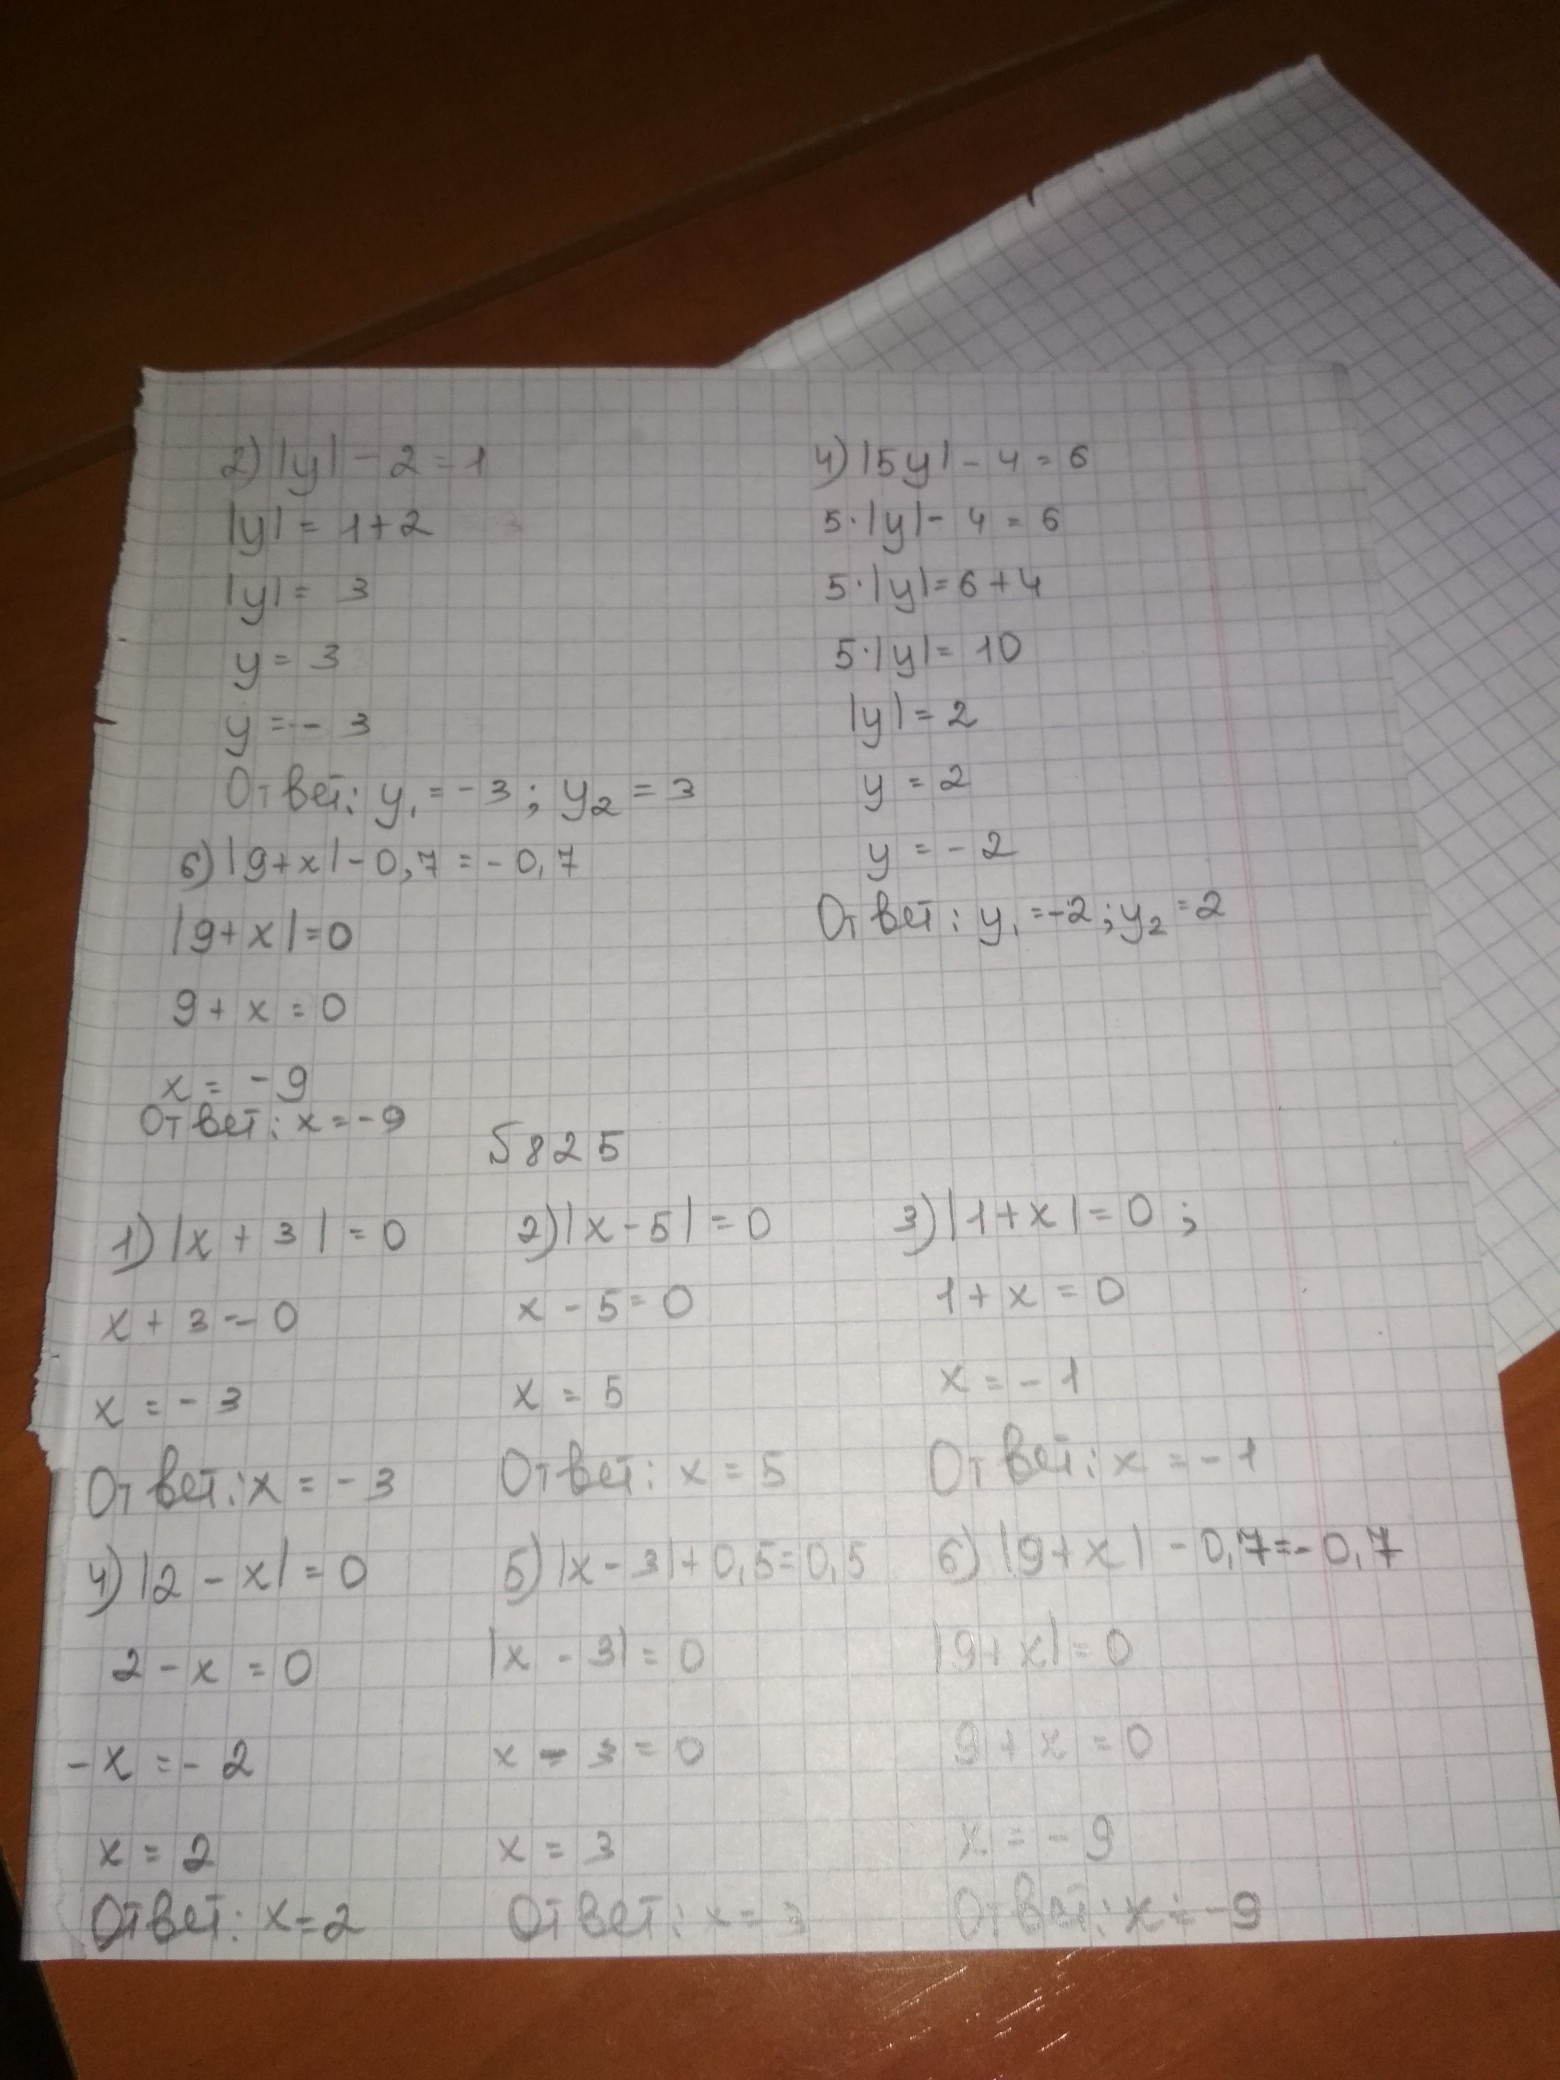 2) |y| - 2 = 1
|y| = 1+2
|y| = 3
y = 3
y = - 3
Ответ: y₁ = -3; y₂ = 3
4) |5y| - 4 = 6
5·|y| - 4 = 6
5·|y| = 6+4
5·|y| = 10
|y| = 2
y = 2
y = -2
Ответ: y₁ = -2; y₂ = 2
6) |9+x| - 0,7 = - 0,7
|9+x| = 0
9 + x = 0
x = - 9
Ответ: x = -9
825
1) |x + 3| = 0
x + 3 = 0
x = - 3
Ответ: x = - 3
2) |x - 5| = 0
x - 5 = 0
x = 5
Ответ: x = 5
3) |1+x| = 0 ;
1 + x = 0
x = - 1
Ответ: x = - 1
4) |2 - x| = 0
2 - x = 0
-x = - 2
x = 2
Ответ: x = 2
5) |x - 3| + 0,5 = 0,5
|x - 3| = 0
x - 3 = 0
x = 3
Ответ: x = 3
6) |9+x| - 0,7 = - 0,7
|9+x| = 0
9 + x = 0
x = - 9
Ответ: x = -9